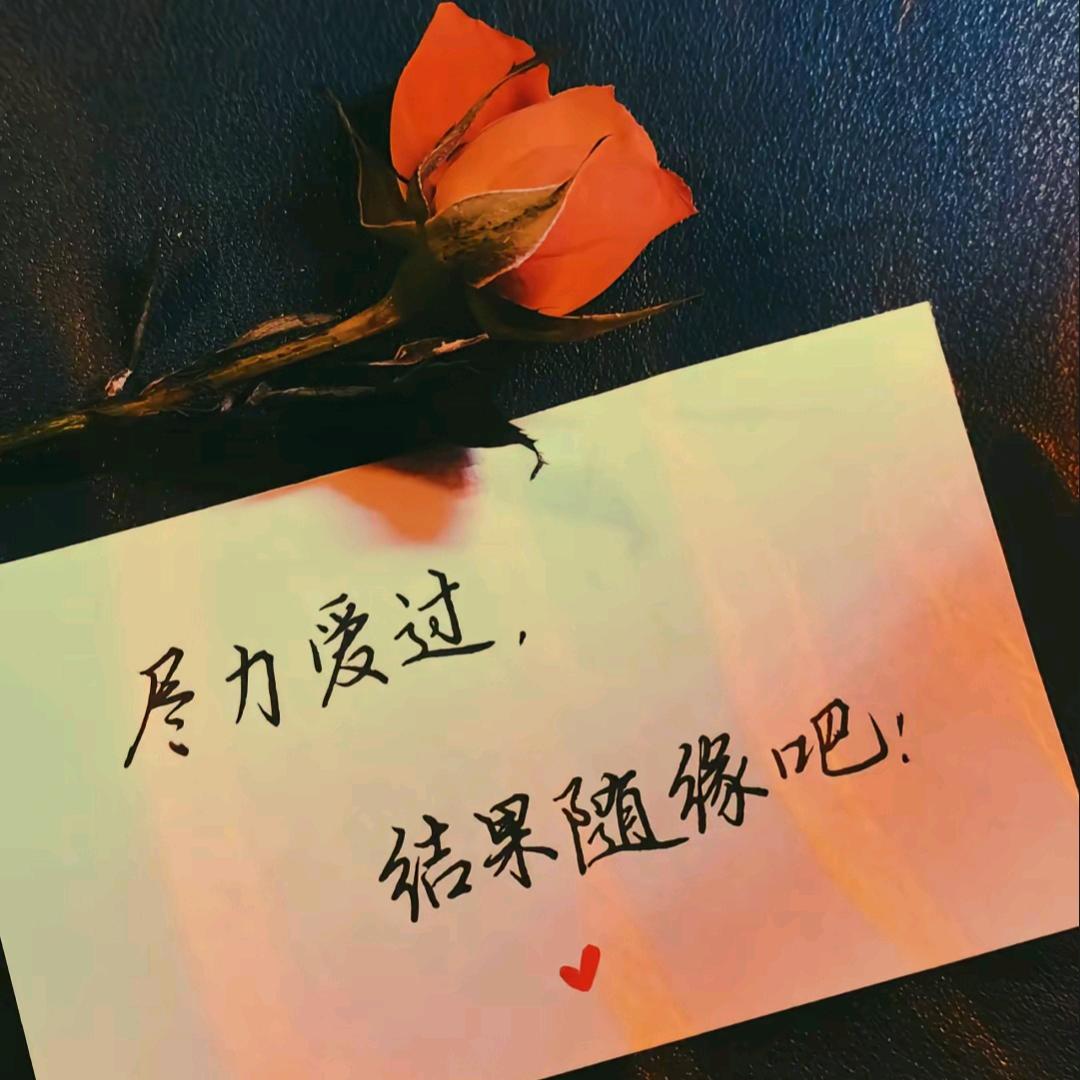 尽力爱过，
结果随缘吧！